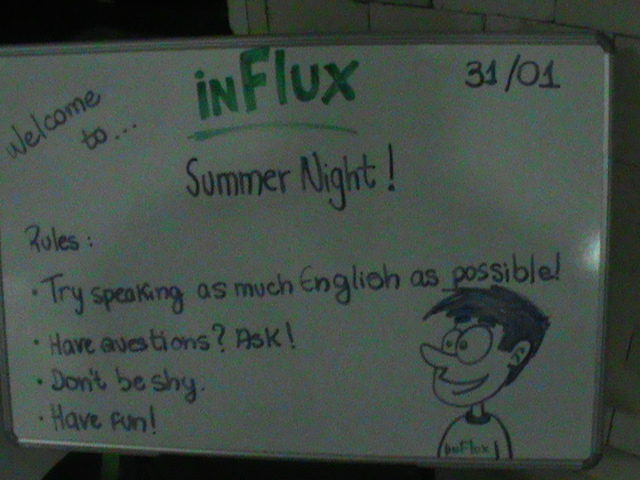 Welcome to...
inFlux
31/01
Summer Night!
Rules:
• Try speaking as much English as possible!
• Have questions? Ask!
• Don't be shy.
• Have fun!
inFlux